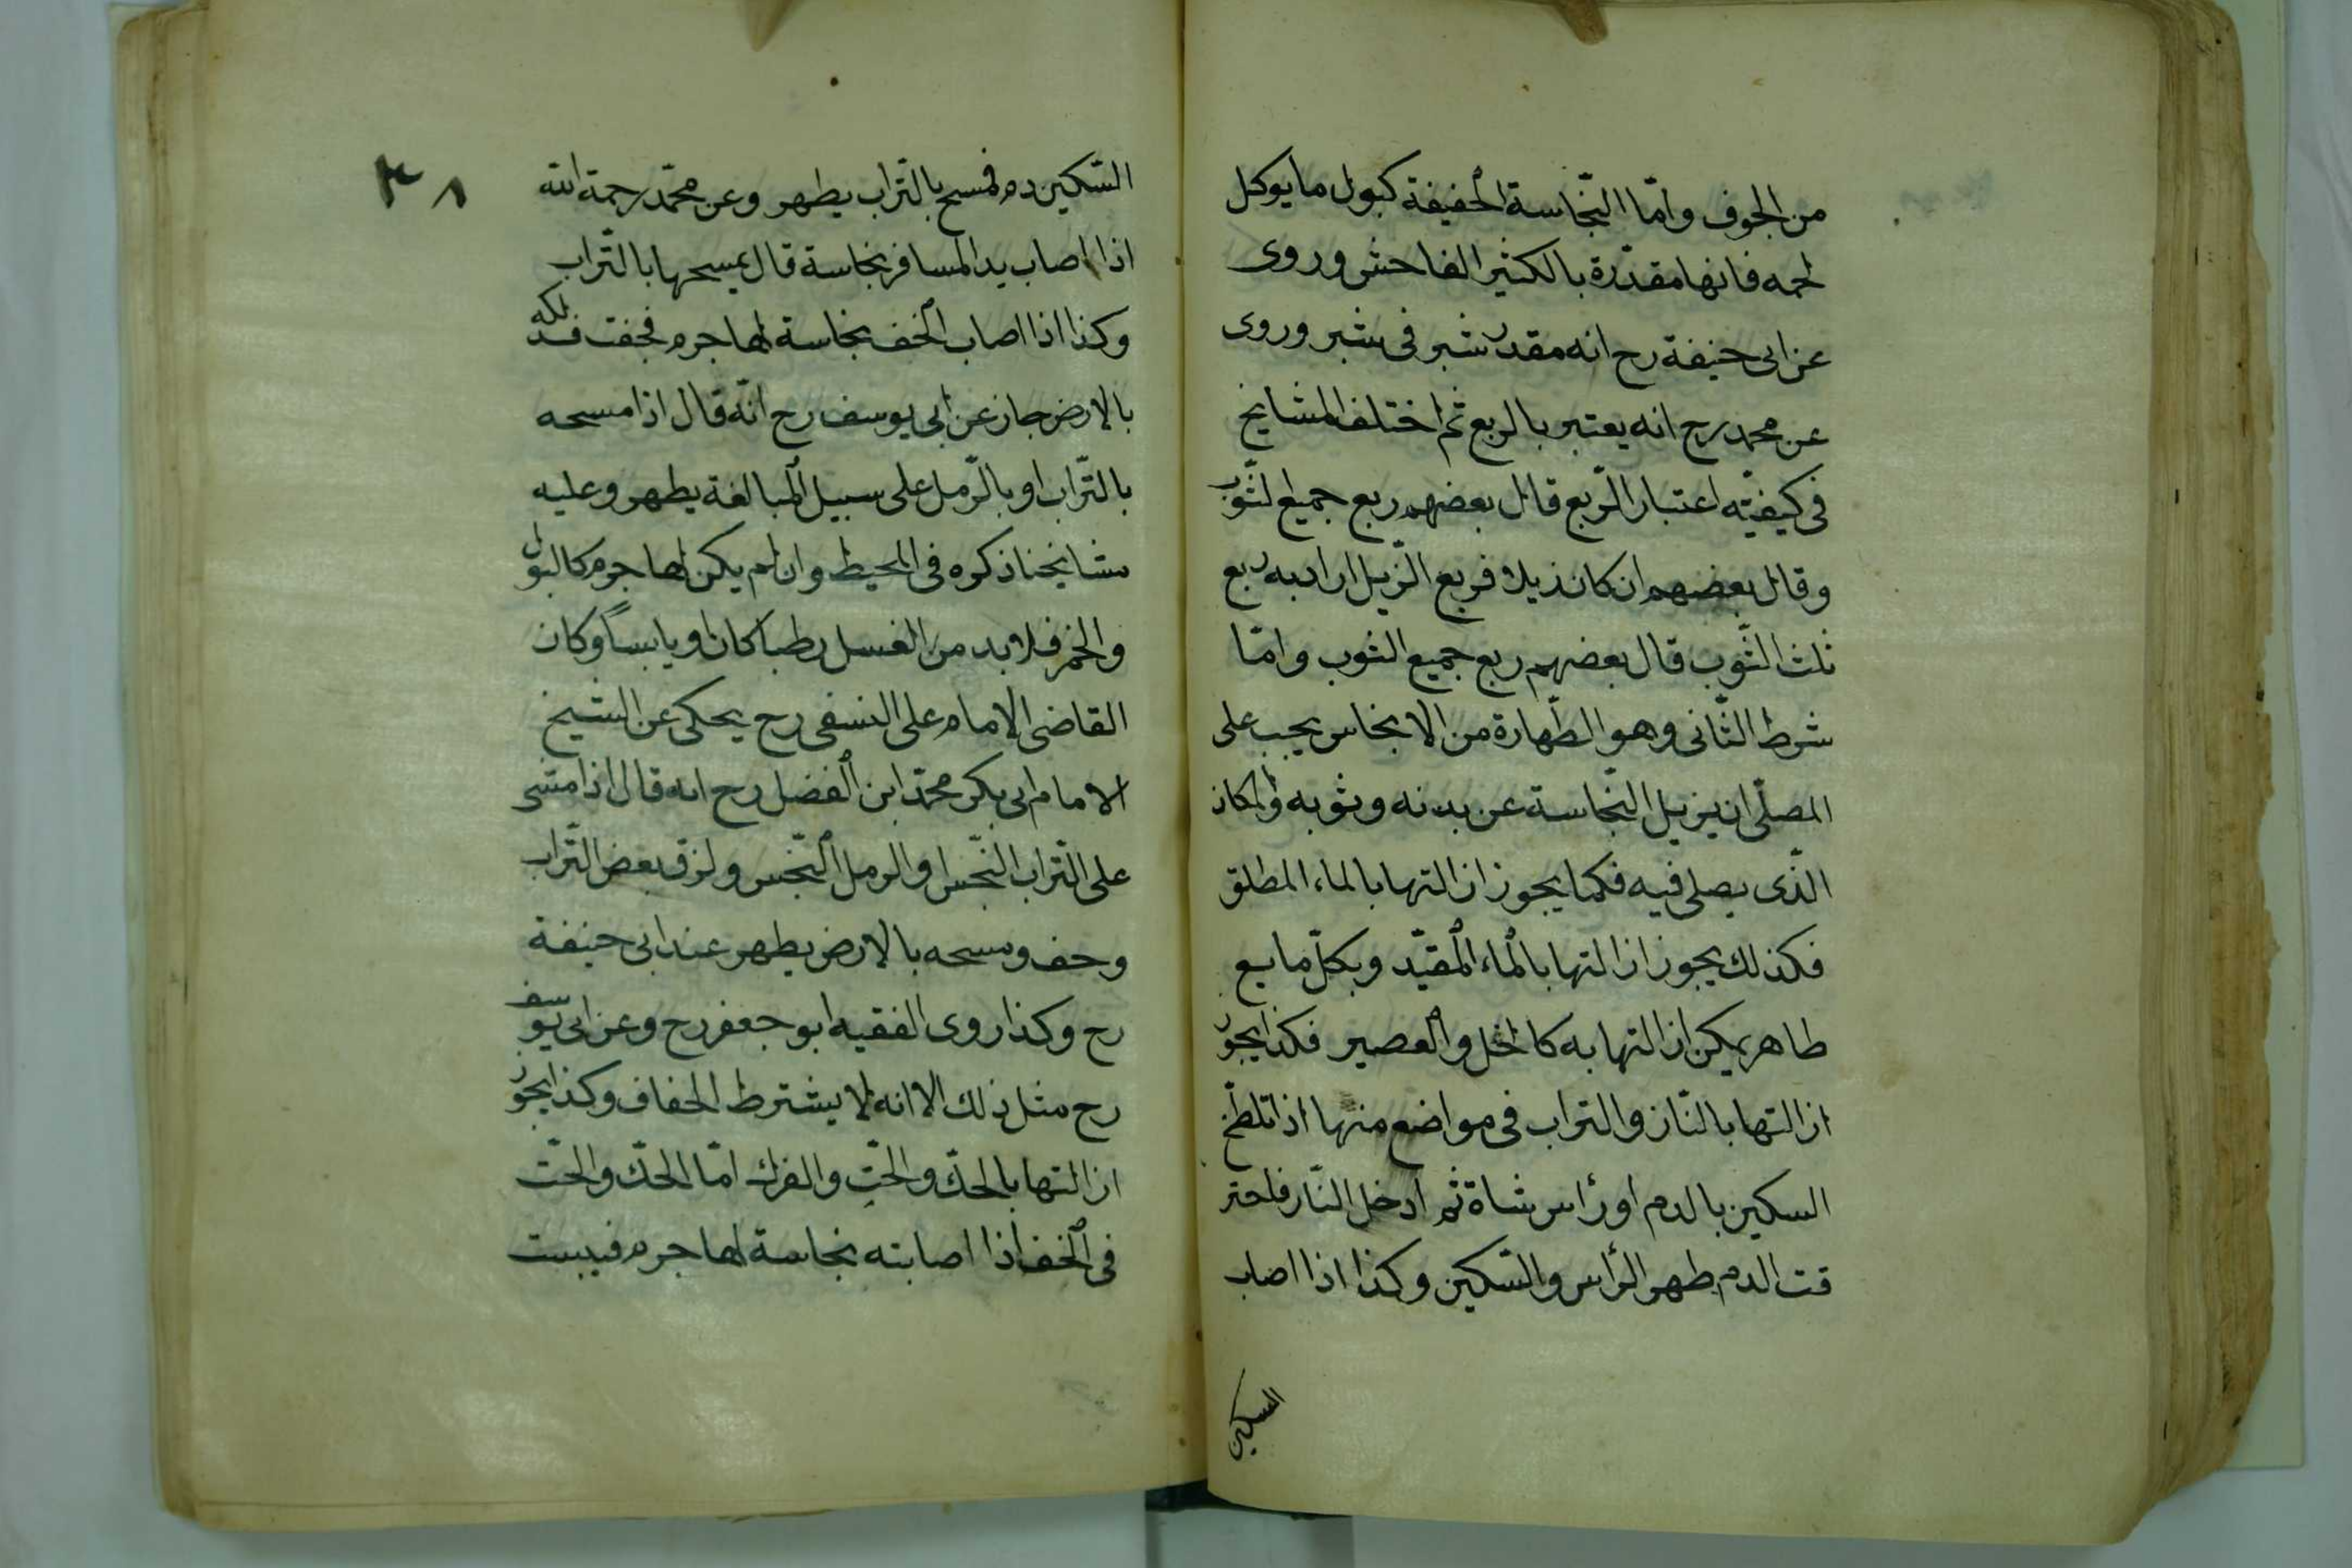 من الجوف وامّا النّجاسة الخفيفة كبول ما يوكل
لحمه فانها مقدّرة بالكثير الفاحش وروى
عن ابى حنيفة رح انه مقدر شبر فى شبر وروى
عن محمد رح انه يعتبر بالربع ثم اختلف المشايخ
فى كيفيّه اعتبار الرّبع قال بعضهم ربع جميع الثّوب
وقال بعضهم ان كان ذيلا فربع الزّيل اراد به ربع
ثلث الثّوب قال بعضهم ربع جميع الثوب وامّا
شرط الثّانى وهو الطّهارة من الانجاس يجب على
المصلّى ان يزيل النّجاسة عن بدنه وثوبه والمكان
الذّى يصلى فيه فكما يجوز ازالتها بالماء المطلق
فكذلك يجوز ازالتها بالماء المقيّد وبكلّ مايع
طاهر يمكن ازالتها به كالخل والعصير فكذا يجوز
ازالتها بالنّار والتراب فى مواضع منها اذا تلطّخ
السكين بالدم او رأس شاة ثم ادخل النّار فاحتر
قت الدم طهر الرأس والسّكين وكذا اذا اصاب
السكين
٣٨
السّكين دم فمسح بالتّراب يطهر وعن محمّد رحمة الله
اذا اصاب يد المسافر نجاسة قال يمسحها بالتّراب
وكذا اذا اصاب الخف نجاسة لها جرم فجفت فدلكه
بالارض جاز عن ابى يوسف رح انّه قال اذا مسحه
بالتّراب او بالرّمل على سبيل المبالغة يطهر وعليه
مشايخنا ذكره فى المحيط وان لم يكن لها جرم كالبول
والخمر فلا بد من الغسل رطبا كان او يابساً وكان
القاضى الامام على النسفى رح يحكى عن الشيخ
الامام ابى بكر محمّد ابن الفضل رح انه قال اذا مشى
على التّراب النّجس او الرمل النّجس ولزق بعض التّراب
وجف ومسحه بالارض يطهر عند ابى حنيفة
رح وكذا روى الفقيه ابو جعفر رح وعن ابى يوسف
رح مثل ذلك الا انه لا يشترط الجفاف وكذا يجوز
ازالتها بالحكّ والحتّ والفرك امّا الحكّ والحتّ
فى الخف اذا اصابته نجاسة لها جرم فيبست